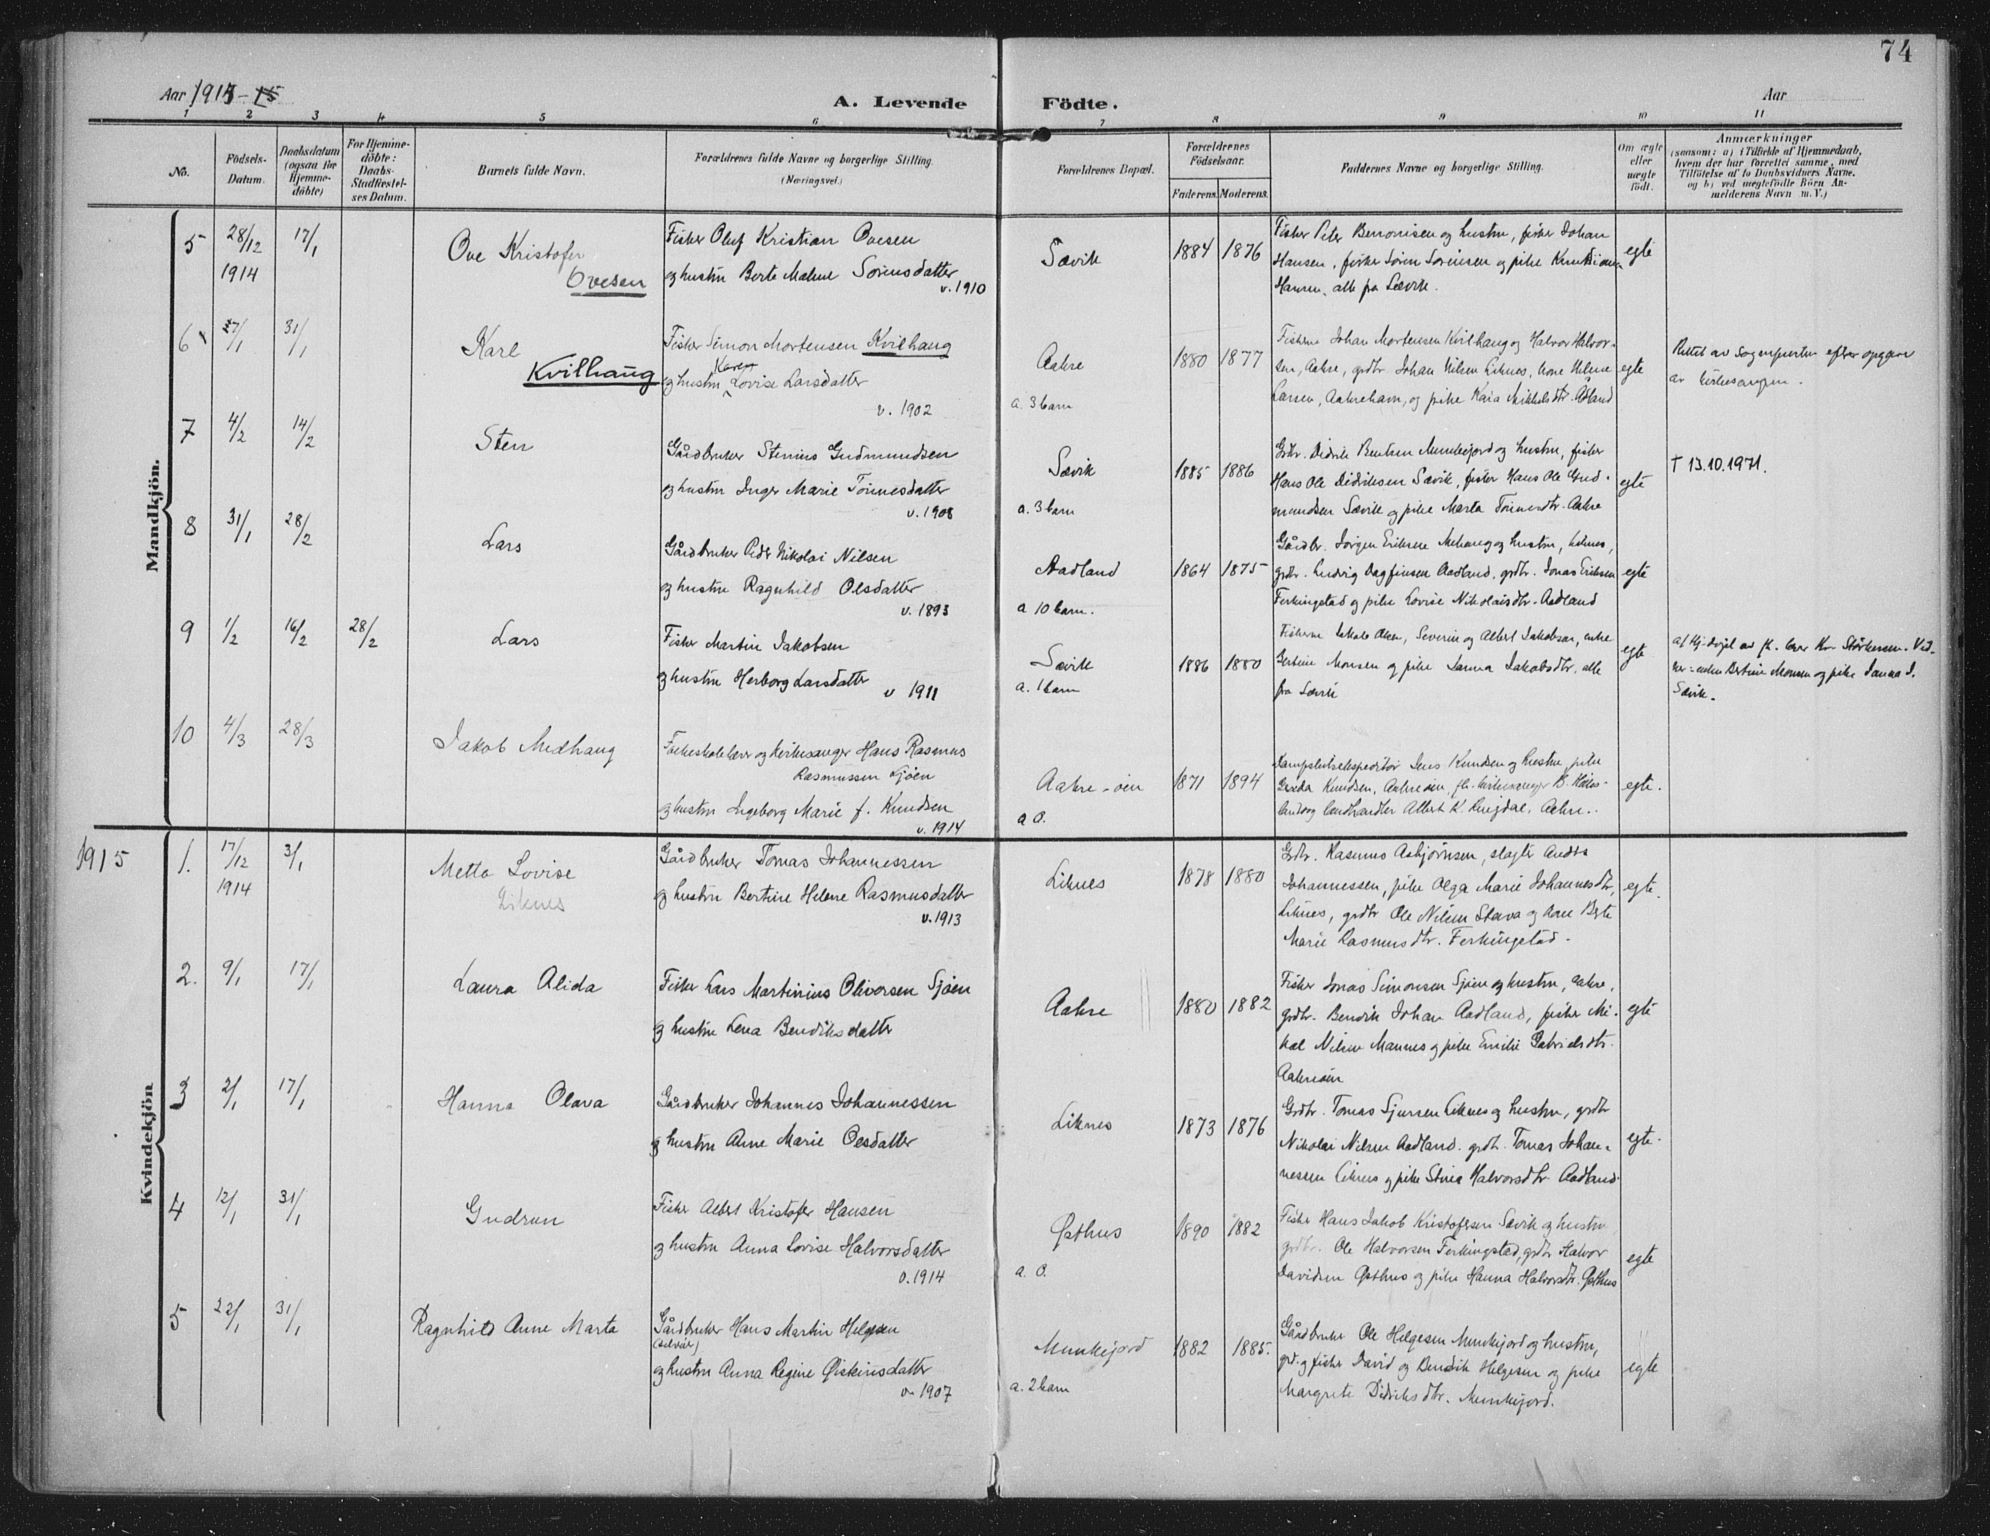 74
Aar 1915
A. Levende Födte.
Aar
1 2 3 4 5 6 7 8 9 10 11
No.
Födsels-
Datum.
Daabsdatum
(ogsaa for
Hjemme-
döbte)
For Hjemme-
döbte:
Daabs-
Stadfæstel-
ses Datum.
Barnets fulde Navn.
Forældrenes fulde Navne og borgerlige Stilling.
(Næringsvei.)
Forældrenes Bopæl.
Forældrenes
Födselsaar.
Faderens. Moderens.
Faddernes Navne og borgerlige Stilling.
Om ægte
eller
uægte
födt.
Anmærkninger
(saasom: a) i Tilfælde af Hjemmedaab,
hvem der har forrettet samme, med
Tilföielse af to Daabsvidners Navne,
og b) ved uægtefödte Börn An-
melderens Navn m. V.)
Mandkjön.
5 28/12 1914 17/1
Ove Kristofer
Ovesen
Fisker Oluf Kristian Ovesen
og hustru Berte Malene Sörensdatter
v. 1910
Sævik
1884 1876
Fisker Peter Bernonisen og hustru, fisker Johan
Hansen, fisker Sören Sörensen og pike
Hansen, alle fra Sævik.
egte
6 27/1 31/1
Karl
Kvilhaug
Fisker Simon Mortensen Kvilhaug
og hustru Karen Lovise Larsdatter
v. 1902
Aakre
a. 3 barn
1880 1877
Fiskerne Johan Mortensen Kvilhaug og Halvor Halvor-
sen, Aakre, grdbr. Johan Nilsen Liknes, kone Helene
Larsen, Aakrehavn, og pike Kaia Mikkelsdtr. Ådland
egte
Rettet av sognepresten efter opgave
av kirkesangeren.
7 4/2 14/2
Sten
Gårdbruker Stenius Gudmundsen
og hustru Inger Marie Tönnesdatter
v. 1908
Sævik
a. 3 barn
1885 1886
Grbr. Didrik Bentsen Munkejord og hustru, fisker
Hans Ole Didriksen Sævik, fisker Hans Ole Gud-
mundsen Sævik og pike Marta Tönnesdtr. Aakre
egte
† 13.10.1971.
8 31/1 28/2
Lars
Gårdbruker Peder Nikolai Nilsen
og hustru Ragnhild Olsdatter
v. 1893
Aadland
a 10 barn.
1864 1875
Gårdbr. Jörgen Eriksen Mehaug og hustru, Liknes,
grdbr. Ludvig Dagfinsen Aadland, grdbr. Jonas Eriksen
Ferkingstad og pike Lovise Nikolaisdtr. Aadland
egte
9 1/2 16/2 28/2
Lars
Fisker Martin Jakobsen
og hustru Herborg Larsdatter
v 1911
Sævik
a. 1 barn
1886 1880
Fiskerne Jakob Olsen, Severin og Albert Jakobsen, enke
Bertine Monsen og pike Janna Jakobsdtr. alle
fra Sævik
egte
ner - enken Bertine Monsen og pike Janna J.
Sævik.
10 4/3 28/3
Jakob Medhaug
Folkeskolelærer og kirkesanger Hans Rasmus
Rasmussen Sjöen
og hustru Ingeborg Marie f. Knudsen
v. 1914
Aakre-öen
a 0.
1871 1894
Dampskibsekspeditör Jens Knudsen og hustru, pike
Gerda Knudsen, Aakreöen, fh. kirkesanger
landhandler Albert K. Lingdal, Aakre.
egte.
1915
Kvindekjön
1. 17/12 1914 3/1
Metta Lovise
Liknes
Gårdbruker Tomas Johannessen
og hustru Bertine Helene Rasmusdatter
v. 1913
Liknes
1878 1880
Grdbr. Rasmus Asbjörnsen, slagter Andr.
Johannessen, pike Olga Marie Johannesdtr,
Liknes, grdbr Ole Nilsen Stava og kone Berte
Marie Rasmusdtr. Ferkingstad.
egte.
2. 9/1 17/1
Laura Alida
Fisker Lars Martinius Oliversen Sjöen
og hustru Lena Bendiksdatter
Aakre
1880 1882
Fisker Jonas Simonsen Sjöen og hustru, Aakre,
grdbr. Bendik Johan Aadland, fisker Mi-
kal Nilsen Mannes og pike Emilie Gabrielsdtr.
Aakreöen
egte
3 2/1 17/1
Hanna Olava
Gårdbruker Johannes Johannessen
og hustru Anne Marie Olsdatter
Liknes
1873 1876
Grdbr. Tomas Sjursen Liknes og hustru, grdbr
Nikolai Nilsen Aadland, grdbr. Tomas Johan-
nessen Liknes og pike Stina Halvorsdtr Aadland.
egte.
4 12/1 31/1
Gudrun
Fisker Albert Kristofer Hansen
og hustru Anna Lovise Halvorsdatter
v. 1914
Østhus
a. 0.
1890 1882
Fisker Hans Jakob Kristofersen Sævik og hustru
grdbr. Ole Halvorsen Ferkingstad, grdbr Halvor
Davidsen Østhus og pike Hanna Halvorsdtr. Østhus
egte
5 22/1 31/1
Ragnhild Anne Marta
Gårdbruker Hans Martin Helgesen
og hustru Anna Regine Østeinsdatter
v. 1907
Munkejord
a. 2 barn
1882 1885.
Gårdbruker Ole Helgesen Munkejord og hustru,
grd. og fisker David og Bendik Helgesen og pike
Margrete Didriksdtr. Munkejord.
egte